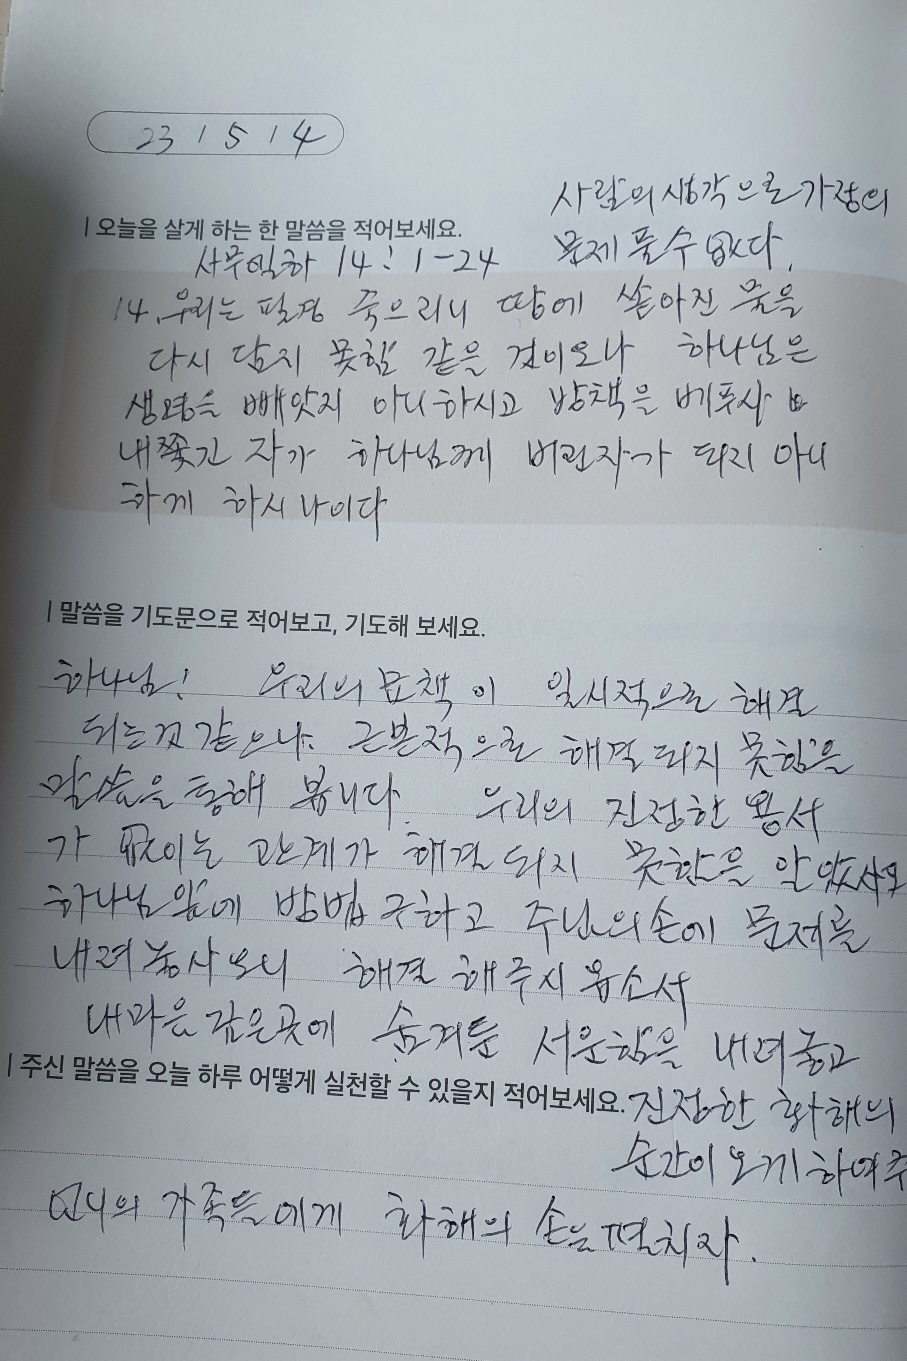 23 / 5 / 4
사람의 생각으로 가정의
문제 풀수 없다.
| 오늘을 살게 하는 한 말씀을 적어보세요.
사무엘하 14 : 1 - 24
14. 우리는 필경 죽으리니 땅에 쏟아진 물을
다시 담지 못함 같을 것이오나 하나님은
생명을 빼앗지 아니하시고 방책을 베푸사
내쫓긴 자가 하나님께 버린자가 되지 아니
하게 하시나이다
| 말씀을 기도문으로 적어보고, 기도해 보세요.
하나님! 우리의 묘책이 일시적으로 해결
되는것 같으나. 근본적으로 해결 되지 못함을
말씀을 통해 봅니다. 우리의 진정한 용서
가 없이는 관계가 해결되지 못함을 알았사오
하나님 앞에 방법 구하고 주님의 손에 문제를
내려놓사오니 해결 해주시옵소서
내마음 깊은곳에 숨겨둔 서운함을 내려놓고
| 주신 말씀을 오늘 하루 어떻게 실천할 수 있을지 적어보세요.
진정한 화해의
순간이 오게 하여주
언니의 가족들에게 화해의 손을 펼치자.